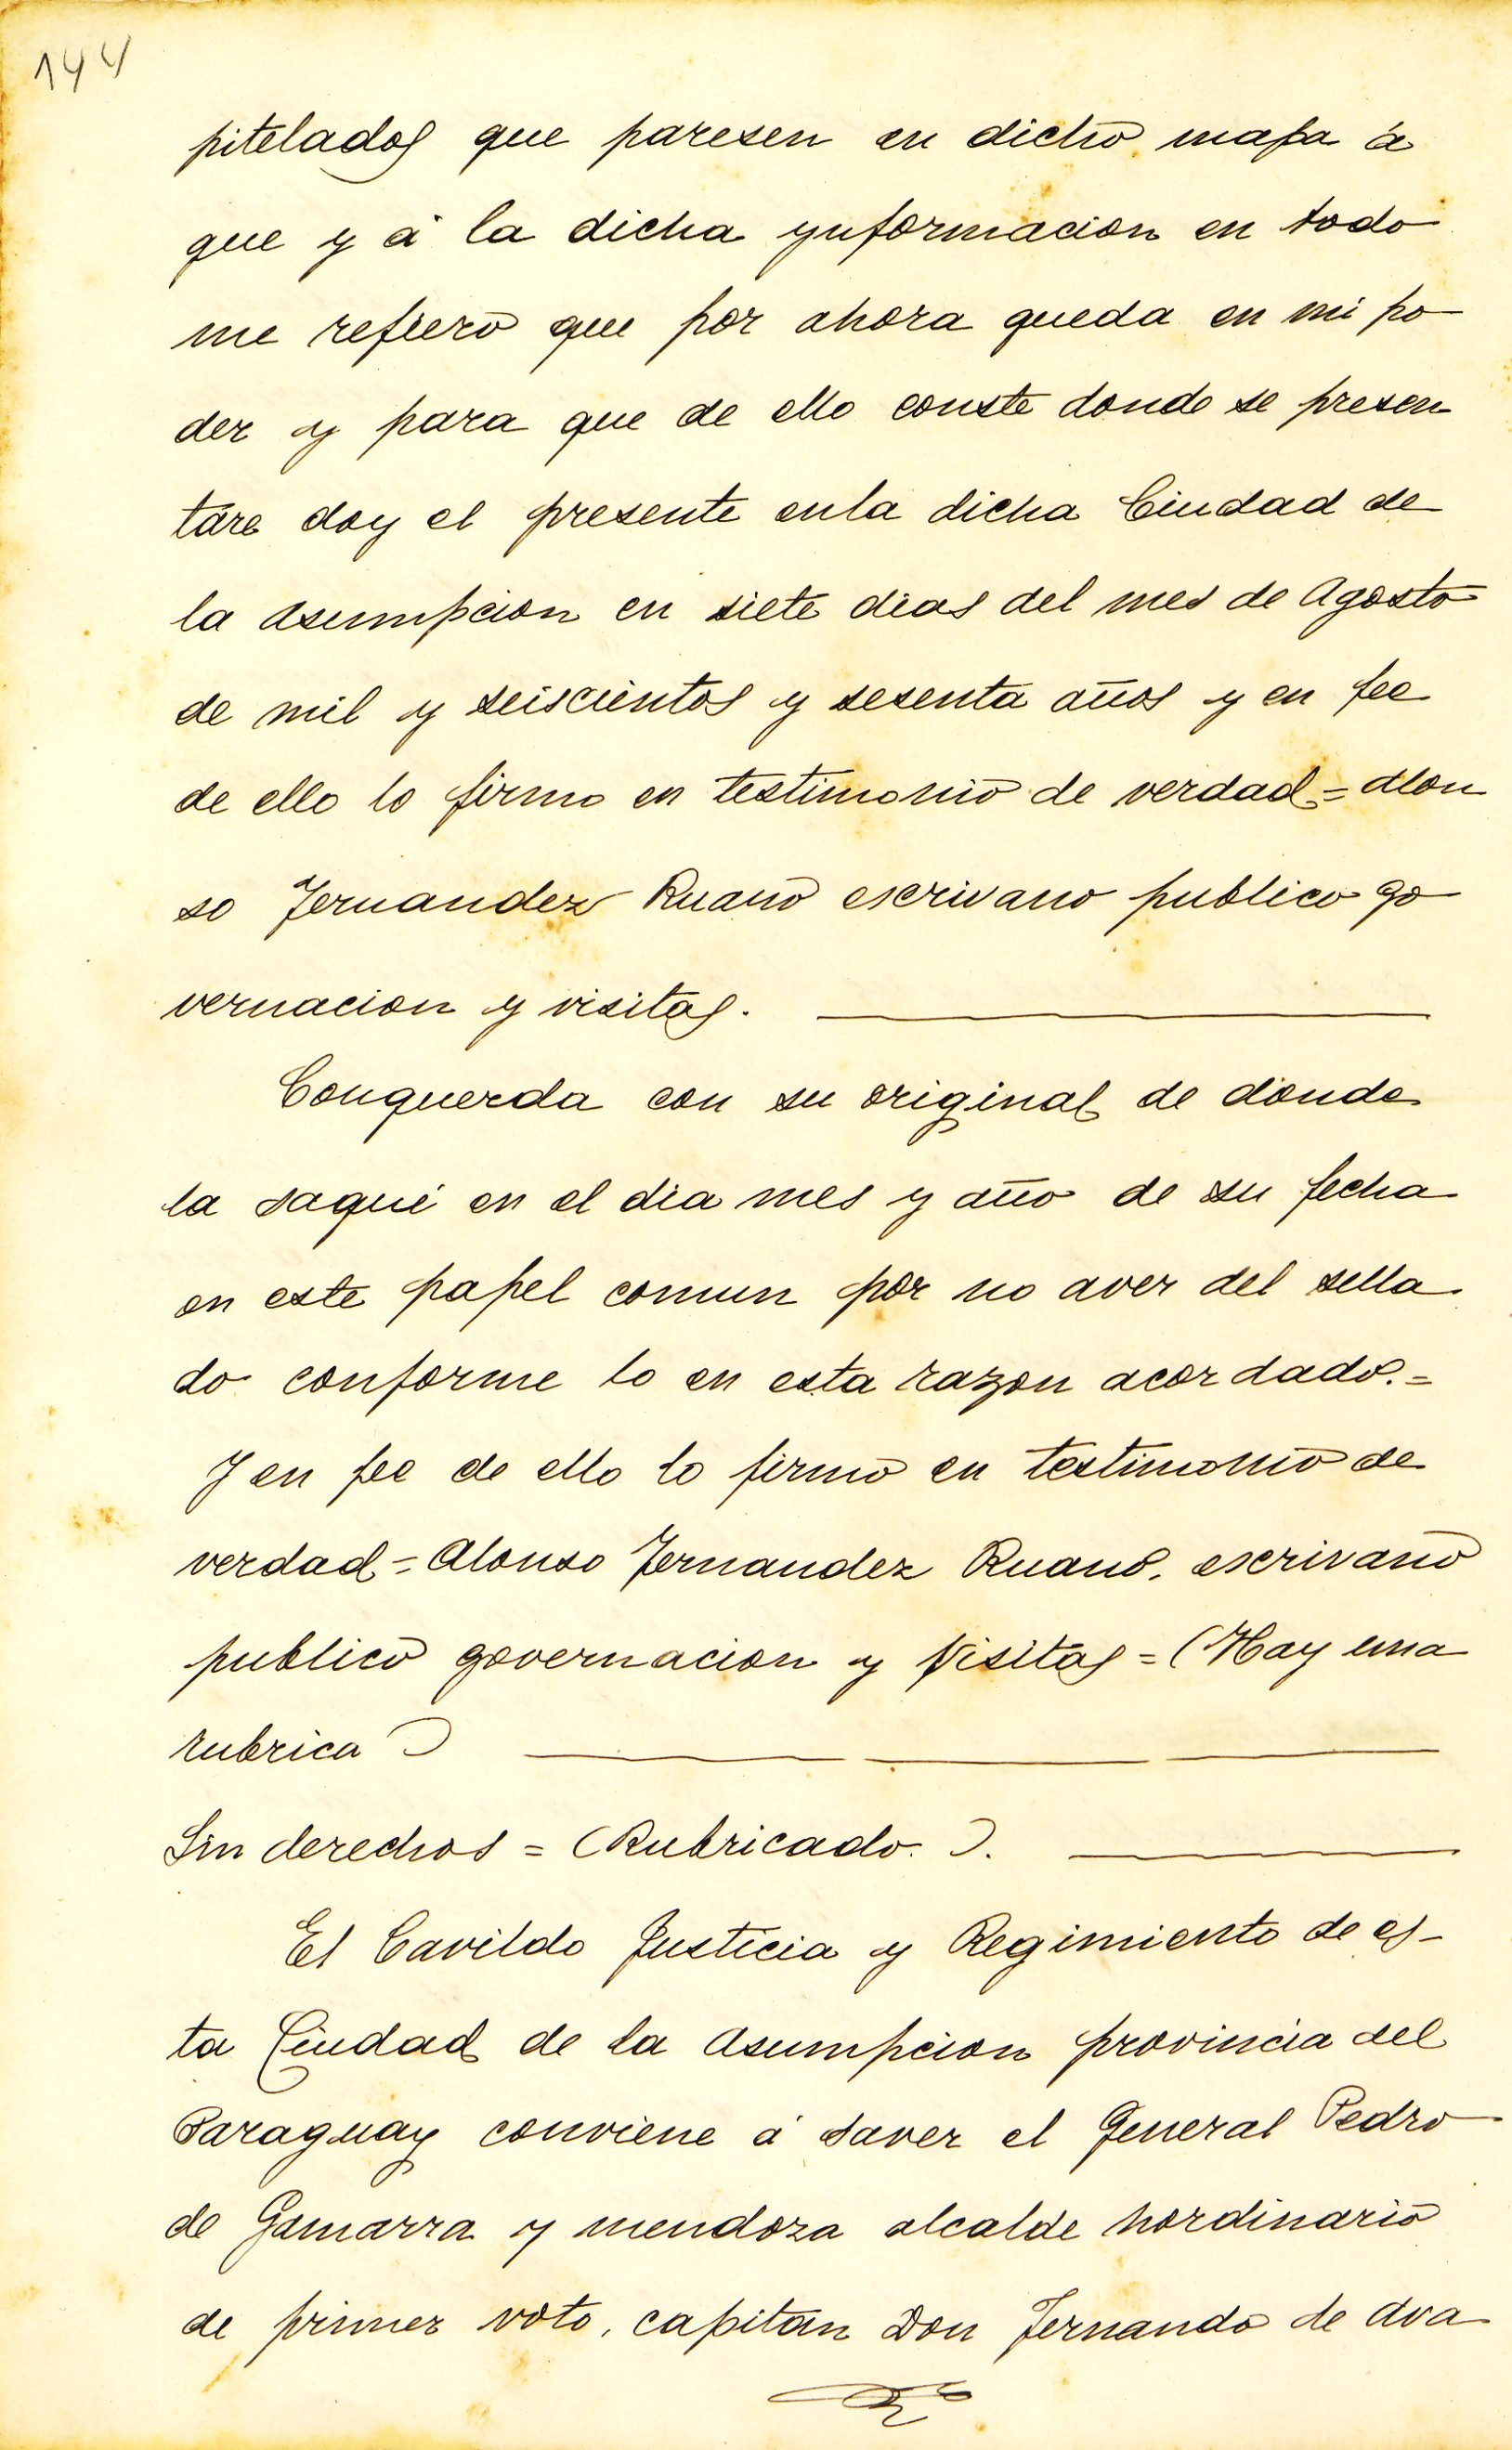 144
pitelados que paresen en dicho mapa á
que y á la dicha ynformacion en todo
me refiero que por ahora queda en mi po
der y para que de ello conste donde se presen
tare doy el presente en la dicha Ciudad de
la Asumpcion en siete dias del mes de Agosto
de mil y seiscientos y sesenta años y en fee
de ello lo firmo en testimonio de verdad = Alon
so Fernandez Ruano escrivano publico go
vernacion y visitas.
Conquerda con su original de donde
la saqué en el dia mes y año de su fecha
en este papel comun por no aver del sella
do conforme lo en esta razon acordado. =
Y en fee de ello lo firmo en testimonio de
verdad = Alonso Fernandez Ruano. escrivano
publico governacion y Visitas = (Hay una
rubrica)
Sin derechos = (Rubricado.).
El Cavildo Justicia y Regimiento de es-
ta Ciudad de la Asumpcion provincia del
Paraguay conviene á saver el General Pedro
de Gamarra y mendoza alcalde hordinario
de primer voto, capitan Don Fernando de Ava